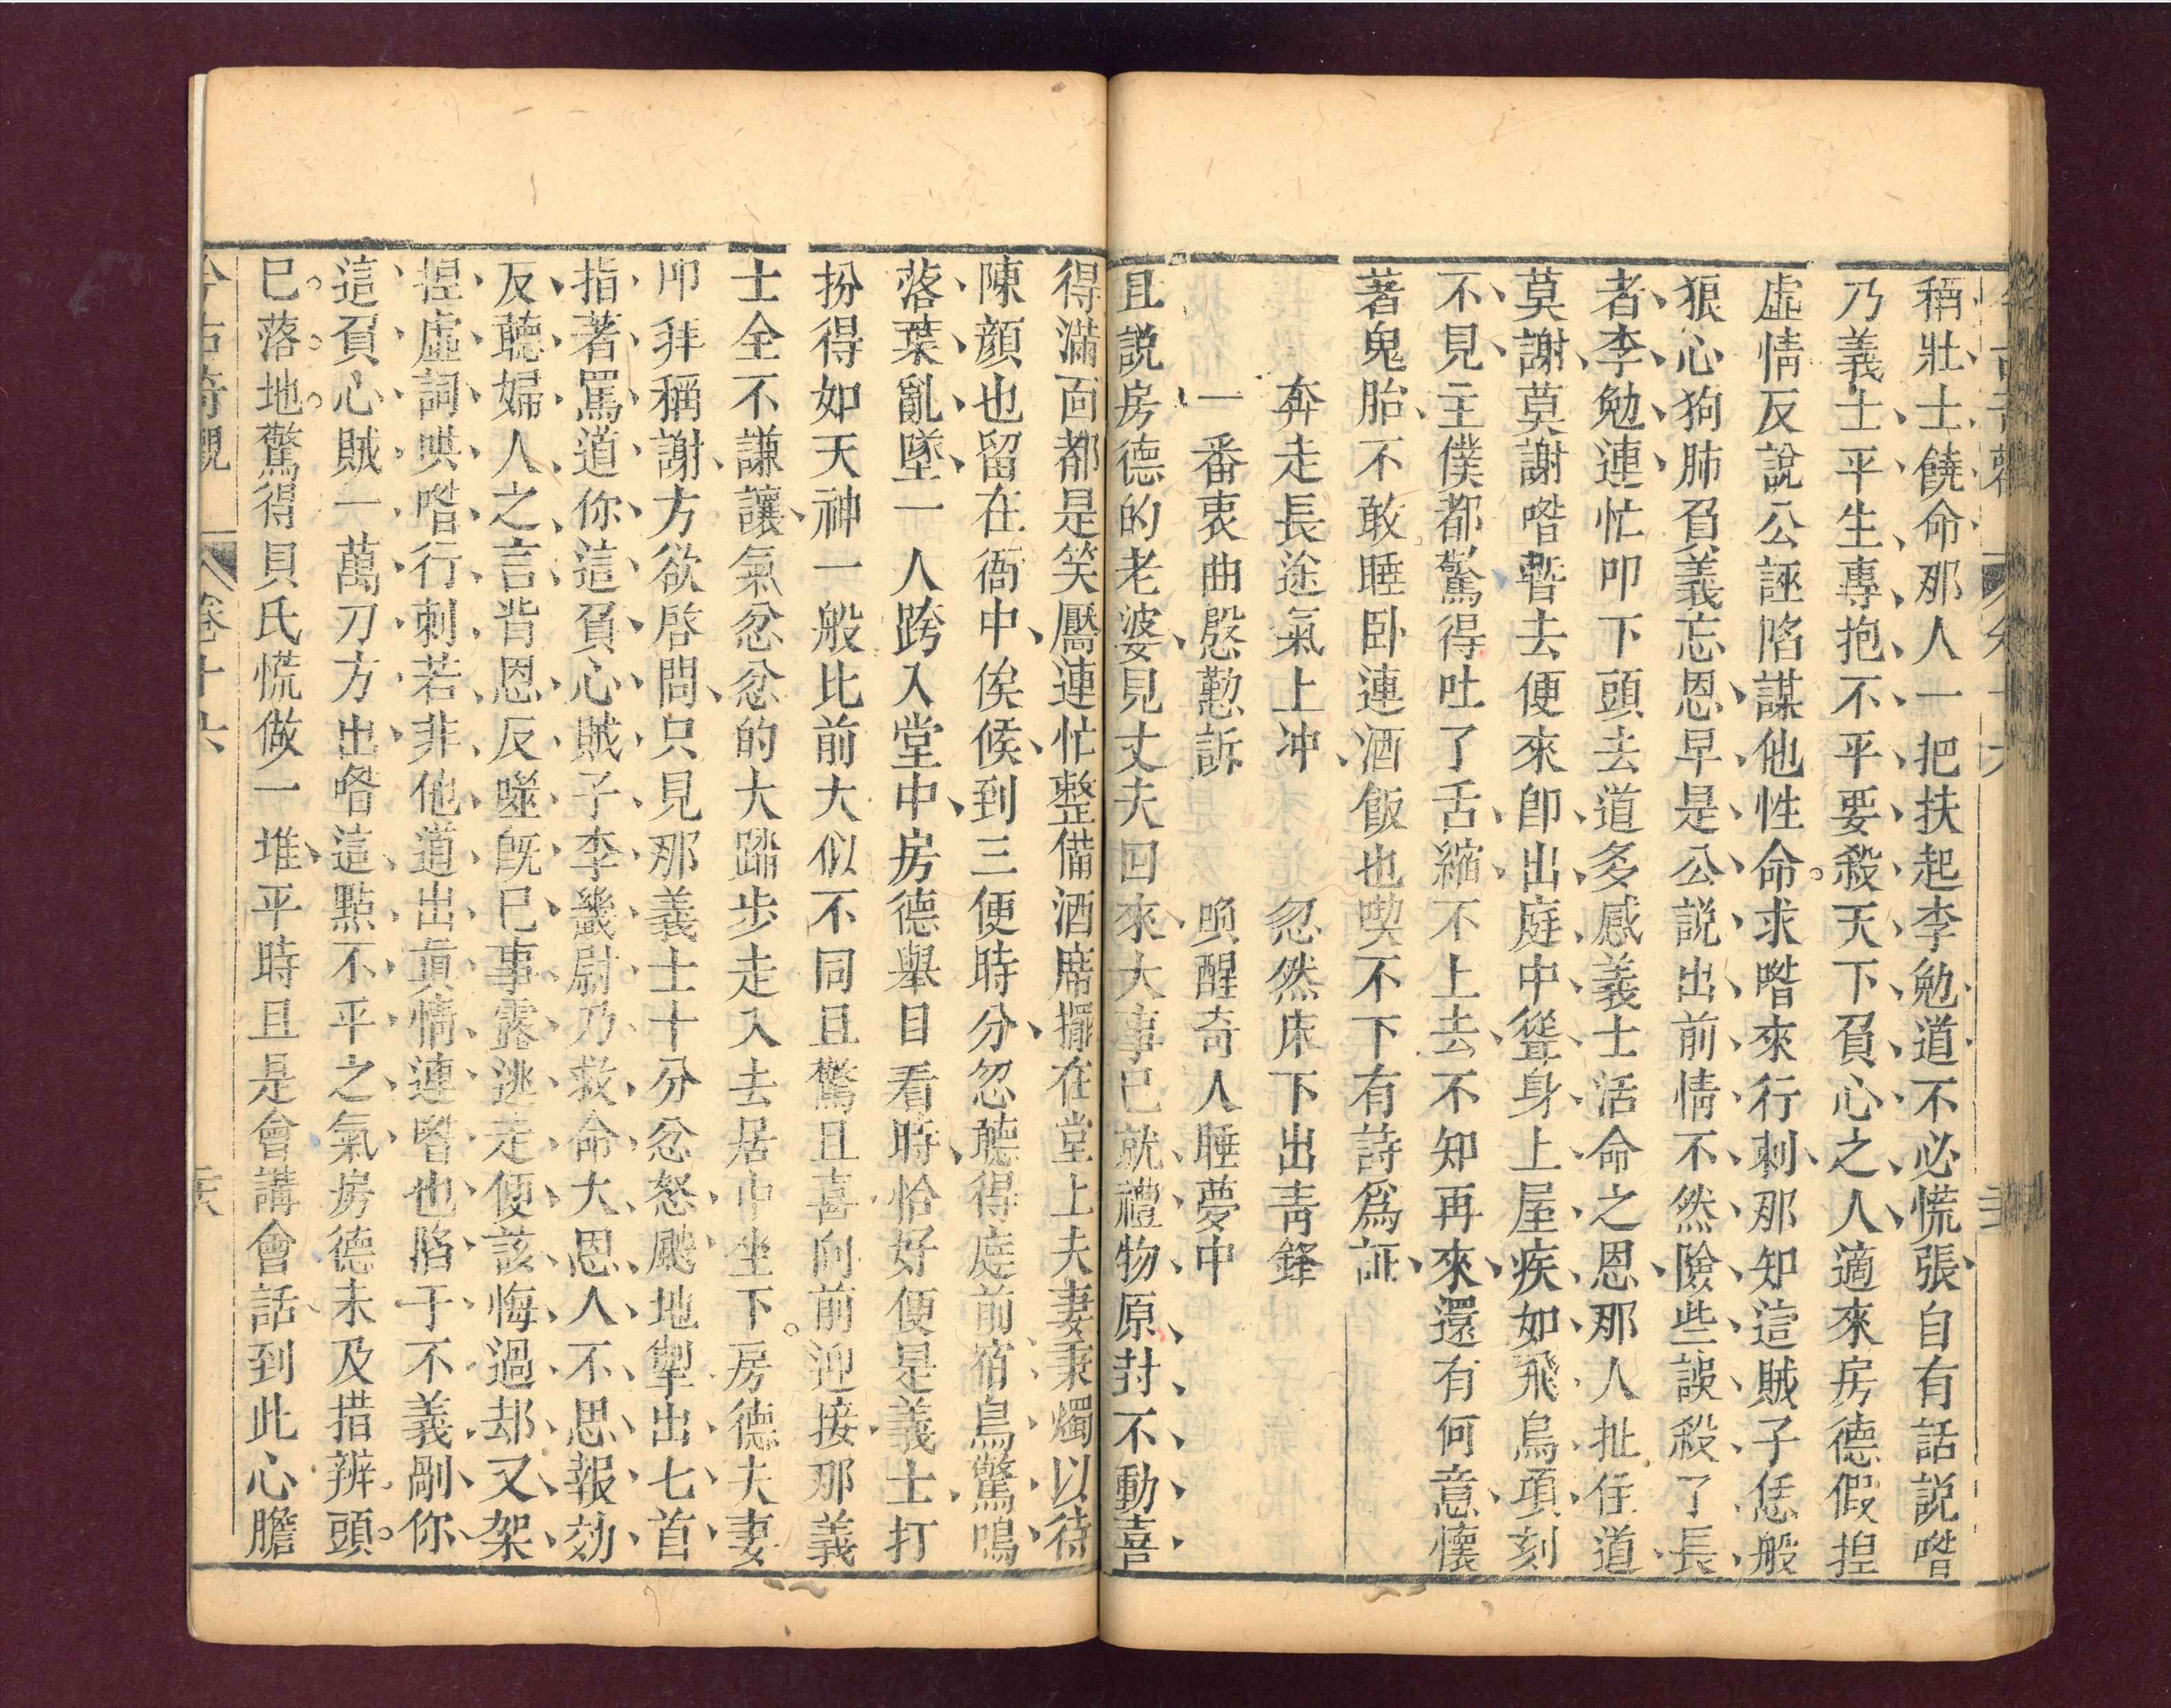 稱壯士饒命那人一把扶起李勉道不必慌張自有話説喒
乃義士平生專抱不平要殺天下負心之人適來房德假揑
虛情反說公誣陷謀他性命求喒來行刺那知這賊子恁般
狼心狗肺負義忘恩早是公説出前情不然險些誤殺了長
者李勉連忙叩下頭去道多感義士活命之恩那人扯住道
莫謝莫謝喒暫去便來卽出庭中聳身上屋疾如飛鳥頃刻
不見主僕都驚得吐了舌縮不上去不知再來還有何意懷
著鬼胎不敢睡卧連酒飯也喫不下有詩爲証
奔走長途氣上冲　忽然床下出靑鋒
一番衷曲慇懃訴　喚醒奇人睡夢中
且說房德的老婆見丈夫回來大事已就禮物原封不動喜
得滿面都是笑靨連忙整備酒席擺在堂上夫妻秉燭以待
陳顔也留在衙中俟候到三便時分忽聽得庭前宿鳥驚鳴
落葉亂墜一人跨入堂中房德舉目看時恰好便是義士打
扮得如天神一般比前大似不同且驚且喜向前迎接那義
士全不謙讓氣忿忿的大踏步走入去居中坐下房德夫妻
叩拜稱謝方欲啓問只見那義士十分忿怒颼地掣出匕首
指著罵道你這負心賊子李畿尉乃救命大恩人不思報効
反聽婦人之言背恩反噬旣已事露逃走便該悔過却又架
揑虛詞哄喒行刺若非他道出眞情連喒也陷于不義剮你
這負心賊一萬刀方出喒這點不平之氣房德未及措辨頭
已落地驚得貝氏慌做一堆平時且是會講會話到此心膽
今古奇觀　卷十六